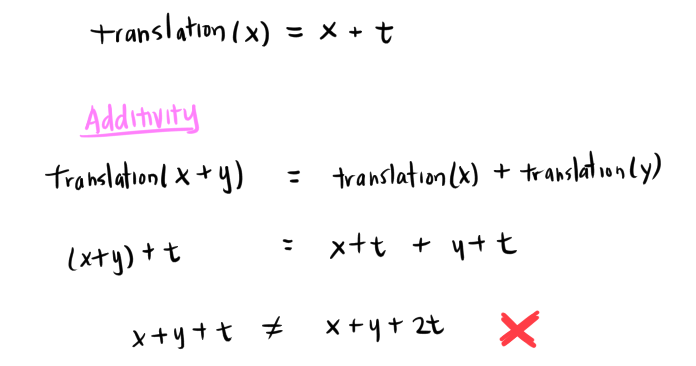 translation(x) = x + t
Additivity
translation(x+y) = translation(x) + translation(y)
(x+y) + t = x+t + y+t
x+y+t ≠ x+y+2t